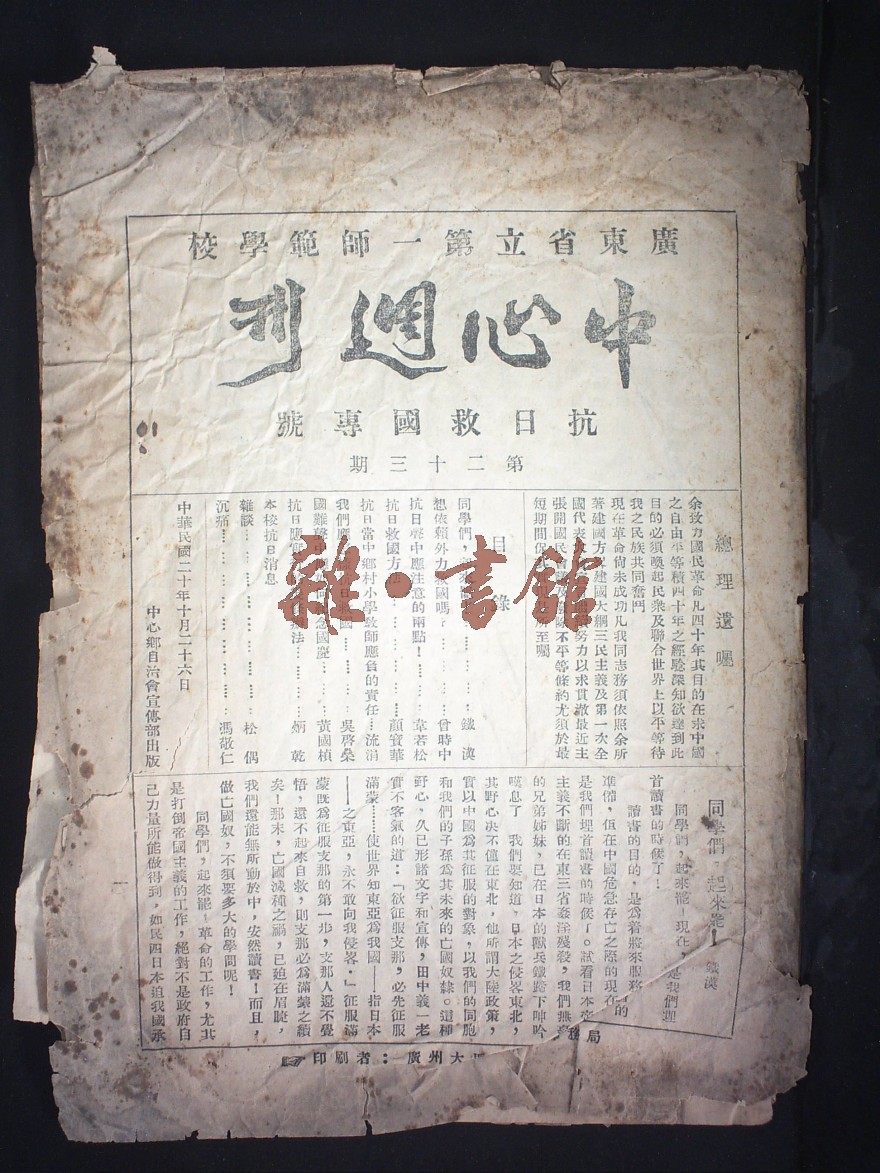 廣東省立第一師範學校
中心週刊
抗日救國專號
第二十三期
總理遺囑
余致力國民革命凡四十年其目的在求中國
之自由平等積四十年之經驗深知欲達到此
目的必須喚起民衆及聯合世界上以平等待
我之民族共同奮鬥
現在革命尙未成功凡我同志務須依照余所
著建國方畧建國大綱三民主義及第一次全
國代表大 努力以求貫澈最近主
張開國民會 不平等條約尤須於最
短期間 所至囑
目錄
同學們, 鐵漢
想依賴外力救國嗎?………曾時中
抗日聲中應注意的兩點!………韋若松
抗日救國方法………顏寶華
抗日當中鄉村小學敎師應負的責任…流涓
我們應 救國………吳啓燊
國難聲中 念國慶………黃國楨
抗日應 法………炳乾
本校抗日消息
雜談………松偶
沉痛………馮敬仁
中華民國二十年十月二十六日
中心鄉自治會宣傳部出版
同學們,起來罷! 鐵漢
同學們,起來罷!現在, 是我們埋
首讀書的時候了!
讀書的目的,是爲着將來服務 的
準備,但在中國危急存亡之際的現在
是我們埋首讀書的時候了。試看日本帝
主義不斷的在東三省姦淫殘殺,我們無辜
的兄弟姊妹,已在日本的獸兵鐵蹄下呻吟
嘆息了 我們要知道,日本之侵畧東北,
其野心决不僅在東北,他所謂大陸政策,
實以中國爲其征服的對象,以我們的同胞
和我們的子孫爲其未來的亡國奴隸。這種
野心,久已形諸文字和宣傳,田中義一老
實不客氣的道:「欲征服支那,必先征服
滿蒙……使世界知東亞爲我國——指日本
——之東亞,永不敢向我侵畧.」征服滿
蒙旣爲征服支那的第一步,支那人還不覺
悟,還不起來自救,則支那必爲滿蒙之續
矣!那末,亡國滅種之禍,已廹在眉睫,
我們還能無所動於中,安然讀書!而且,
做亡國奴,不須要多大的學問呢!
同學們,起來罷!革命的工作,尤其
是打倒帝國主義的工作,絕對不是政府自
己力量所能做得到,如民四日本迫我國承
一
印刷者:廣州大 務局
雜·書館